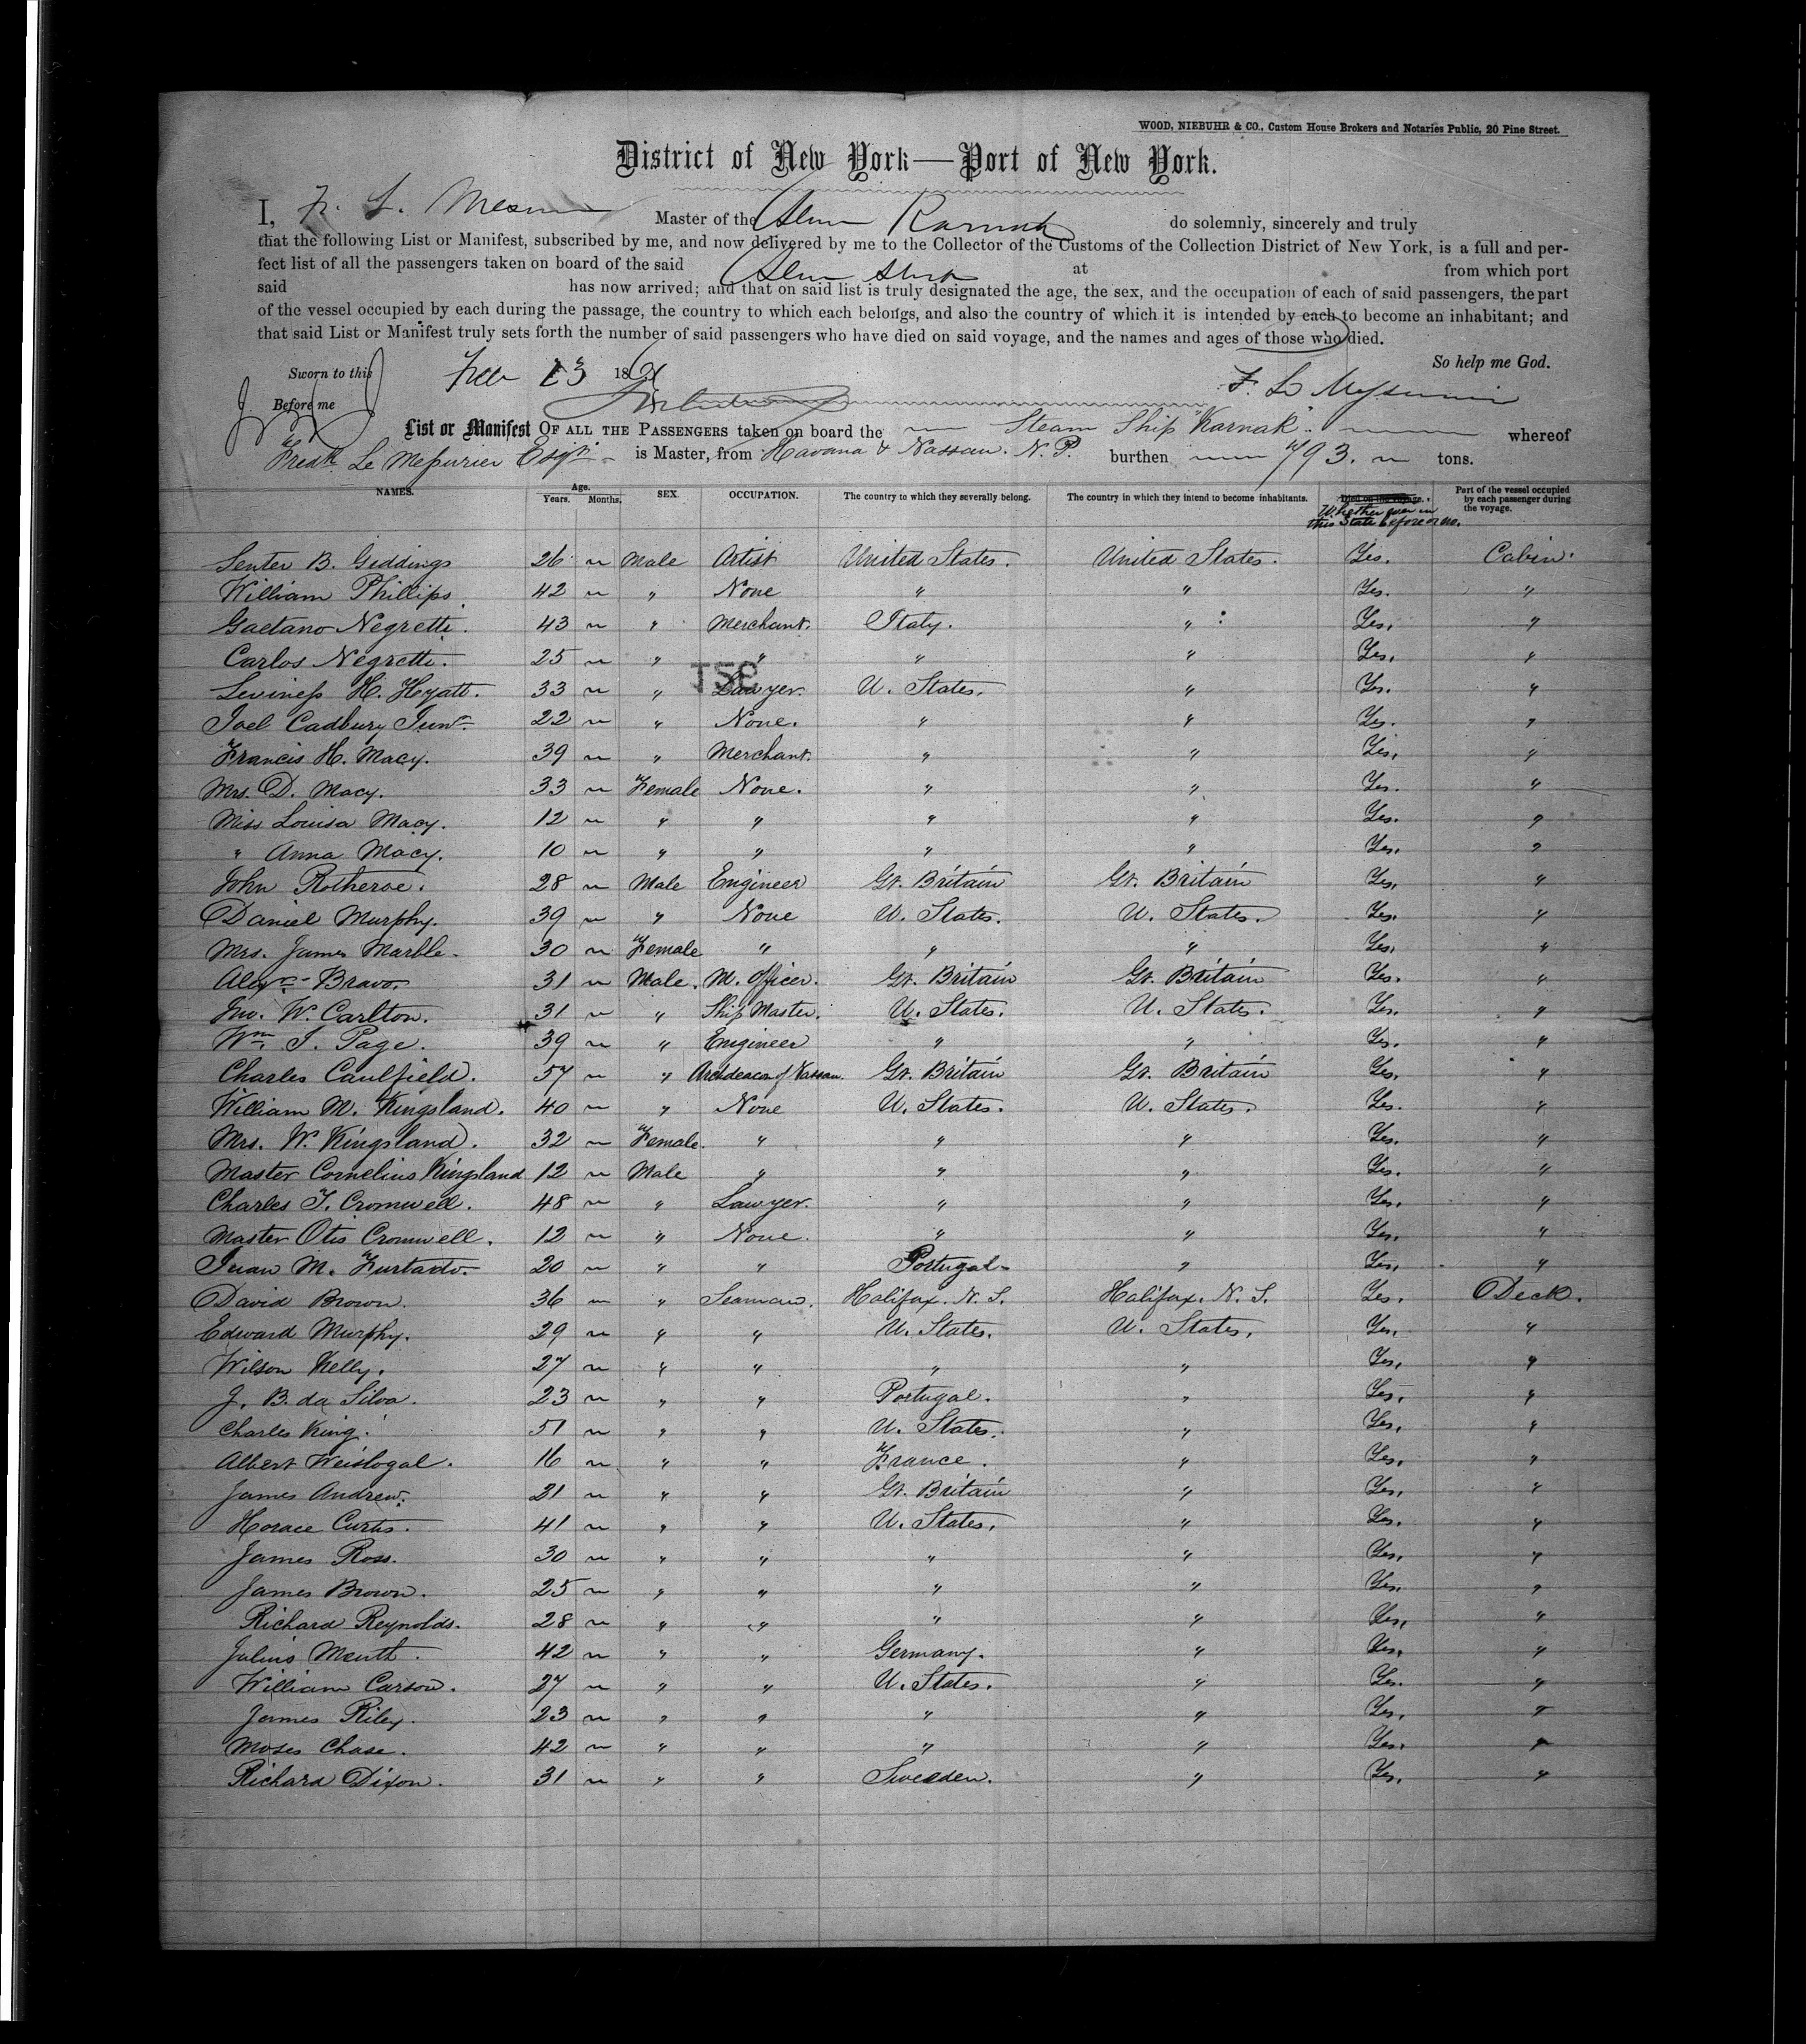 WOOD, NIEBUHR & CO., Custom House Brokers and Notaries Public, 20 Pine Street.
District of New York—Port of New York.
I, Master of the Karnak do solemnly, sincerely and truly
that the following List or Manifest, subscribed by me, and now delivered by me to the Collector of the Customs of the Collection District of New York, is a full and per-
fect list of all the passengers taken on board of the said at from which port
said has now arrived; and that on said list is truly designated the age, the sex, and the occupation of each of said passengers, the part
of the vessel occupied by each during the passage, the country to which each belongs, and also the country of which it is intended by each to become an inhabitant; and
that said List or Manifest truly sets forth the number of said passengers who have died on said voyage, and the names and ages of those who died.
So help me God.
Sworn to this 186
Before me
List or Manifest OF ALL THE PASSENGERS taken on board the Steam Ship "Karnak" whereof
Fredk. Le Meſurier Esqr. is Master, from Havana & Nassau. N. P. burthen 793. tons.
NAMES. Age. Years. Months. SEX. OCCUPATION. The country to which they severally belong. The country in which they intend to become inhabitants. Died on the voyage. Whether ever in this State before or no. Part of the vessel occupied by each passenger during the voyage.
Senter B. Giddings 26 Male Artist United States. United States. Yes. Cabin.
William Phillips 42 " None " " Yes. "
Gaetano Negretti. 43 " Merchant. Italy. " Yes. "
Carlos Negretti. 25 " " " " Yes. "
TSC
Levineſs H. Hyatt. 33 " Lawyer. U. States. " Yes. "
Joel Cadbury Junr 22 " None. " " Yes. "
Francis H. Macy. 39 " Merchant. " " Yes. "
Mrs. D. Macy. 33 Female None. " " Yes. "
Miss Louisa Macy. 12 " " " " Yes. "
" Anna Macy. 10 " " " " Yes. "
John Rotheroe. 28 Male Engineer Gt. Britain Gt. Britain Yes. "
Daniel Murphy. 39 " None U. States. U. States. Yes. "
Mrs. James Marble. 30 Female " " " Yes. "
Alexr. Bravo. 31 Male. M. Officer. Gt. Britain Gt. Britain Yes. "
Jno. W. Carlton. 31 " Ship Master. U. States. U. States. Yes. "
Wm. J. Page. 39 " Engineer " " Yes. "
Charles Caulfield. 57 " Archdeacon of Nassau. Gt. Britain Gt. Britain Yes. "
William M. Kingsland. 40 " None U. States. U. States. Yes. "
Mrs. W. Kingsland. 32 Female. " " " Yes. "
Master Cornelius Kingsland 12 Male " " " Yes. "
Charles T. Cromwell. 48 " Lawyer. " " Yes. "
Master Otis Cromwell. 12 " None. " " Yes. "
Juan M. Furtado. 20 " " Portugal. " Yes. "
David Brown. 36 " Seaman. Halifax. N. S. Halifax. N. S. Yes. Deck.
Edward Murphy. 29 " " U. States. U. States. Yes. "
Wilson Kelly. 27 " " " " Yes. "
J. B. da Silva. 23 " " Portugal. " Yes. "
Charles King. 51 " " U. States. " Yes. "
Albert Weislogal. 16 " " France. " Yes. "
James Andrew. 21 " " Gt. Britain " Yes. "
Horace Curtis. 41 " " U. States. " Yes. "
James Ross. 30 " " " " Yes. "
James Brown. 25 " " " " Yes. "
Richard Reynolds. 28 " " " " Yes. "
Julius Menth. 42 " " Germany. " Yes. "
William Carson. 27 " " U. States. " Yes. "
James Riley. 23 " " " " Yes. "
Moses Chase. 42 " " " " Yes. "
Richard Dixon. 31 " " Sweden. " Yes. "